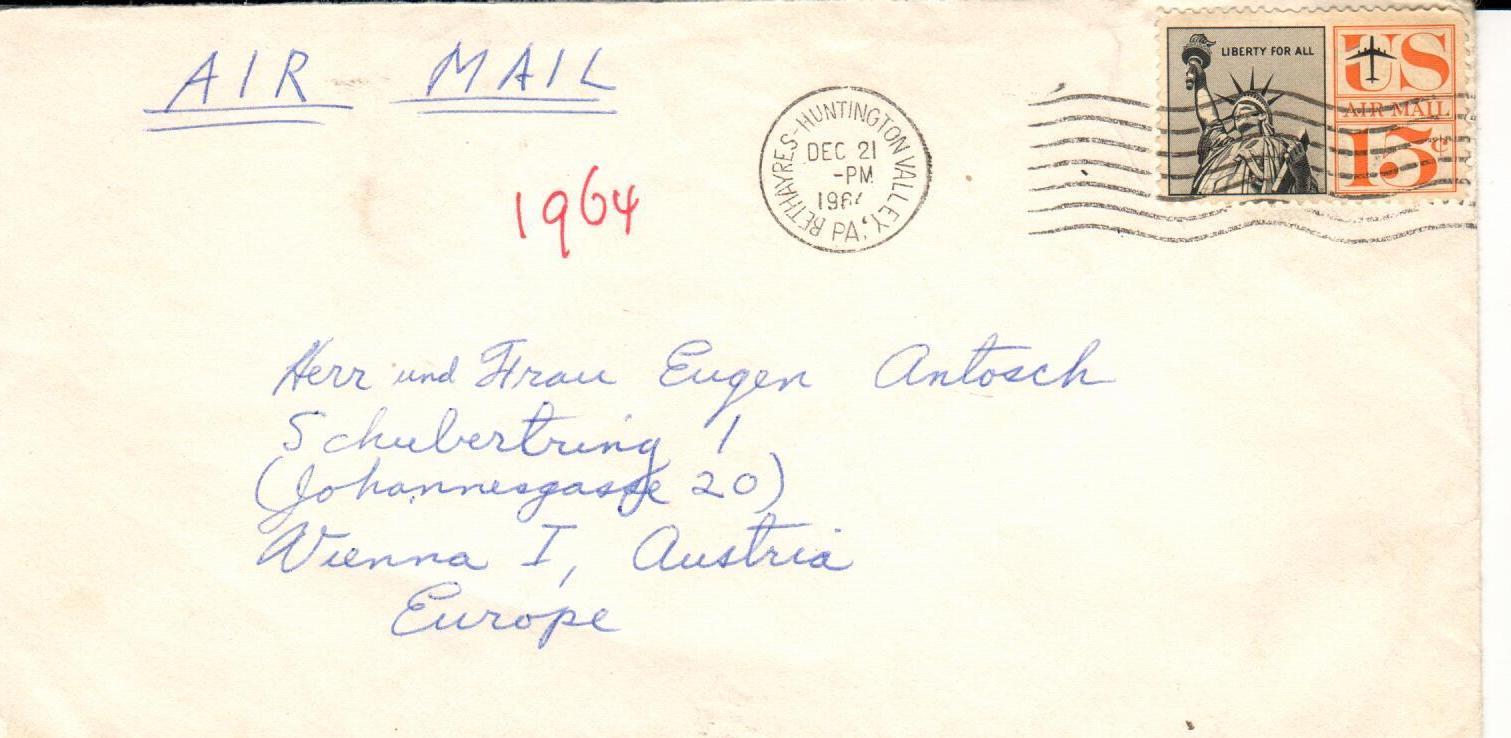 AIR MAIL
LIBERTY FOR ALL
US
AIR MAIL
15¢
BETHAYRES-HUNTINGTON VALLEY, PA.
DEC 21
-PM
1964
Herr und Frau Eugen Antosch
Schubertring 1
(Johannesgasse 20)
Vienna I, Austria
Europe